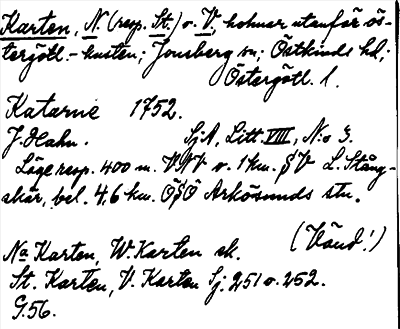 Karten, N. (resp. St.) o. V., holmar utanför ös-
tergötl.-kusten; Jonsberg sn; Östkinds hd;
Östergötl. l.
Katarne 1752.
J. Hahn. SjA, Litt. VIII, N:o 3.
Läge resp. 400 m. VNV o. 1 km. S'V L. Stång-
skär, bel. 4,6 km. ÖSÖ Arkösunds stn.
(Vänd!)
Na Karten, W. Karten sk.
St. Karten, V. Karten Sj. 251 o. 252.
G.56.